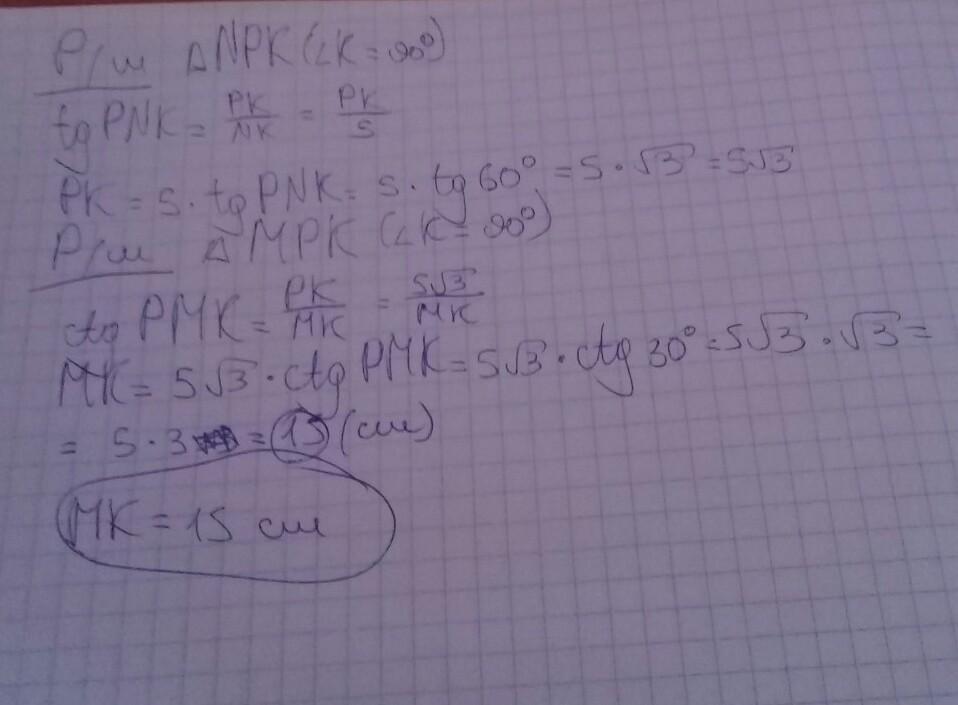 Р/м △NPK (∠K = 90°)
tg PNK = PK/NK = PK/5
PK = 5 · tg PNK = 5 · tg 60° = 5 · √3 = 5√3
Р/м △MPK (∠K = 90°)
ctg PMK = PK/MK = 5√3/MK
MK = 5√3 · ctg PMK = 5√3 · ctg 30° = 5√3 · √3 =
= 5 · 3 = 15 (см)
MK = 15 см